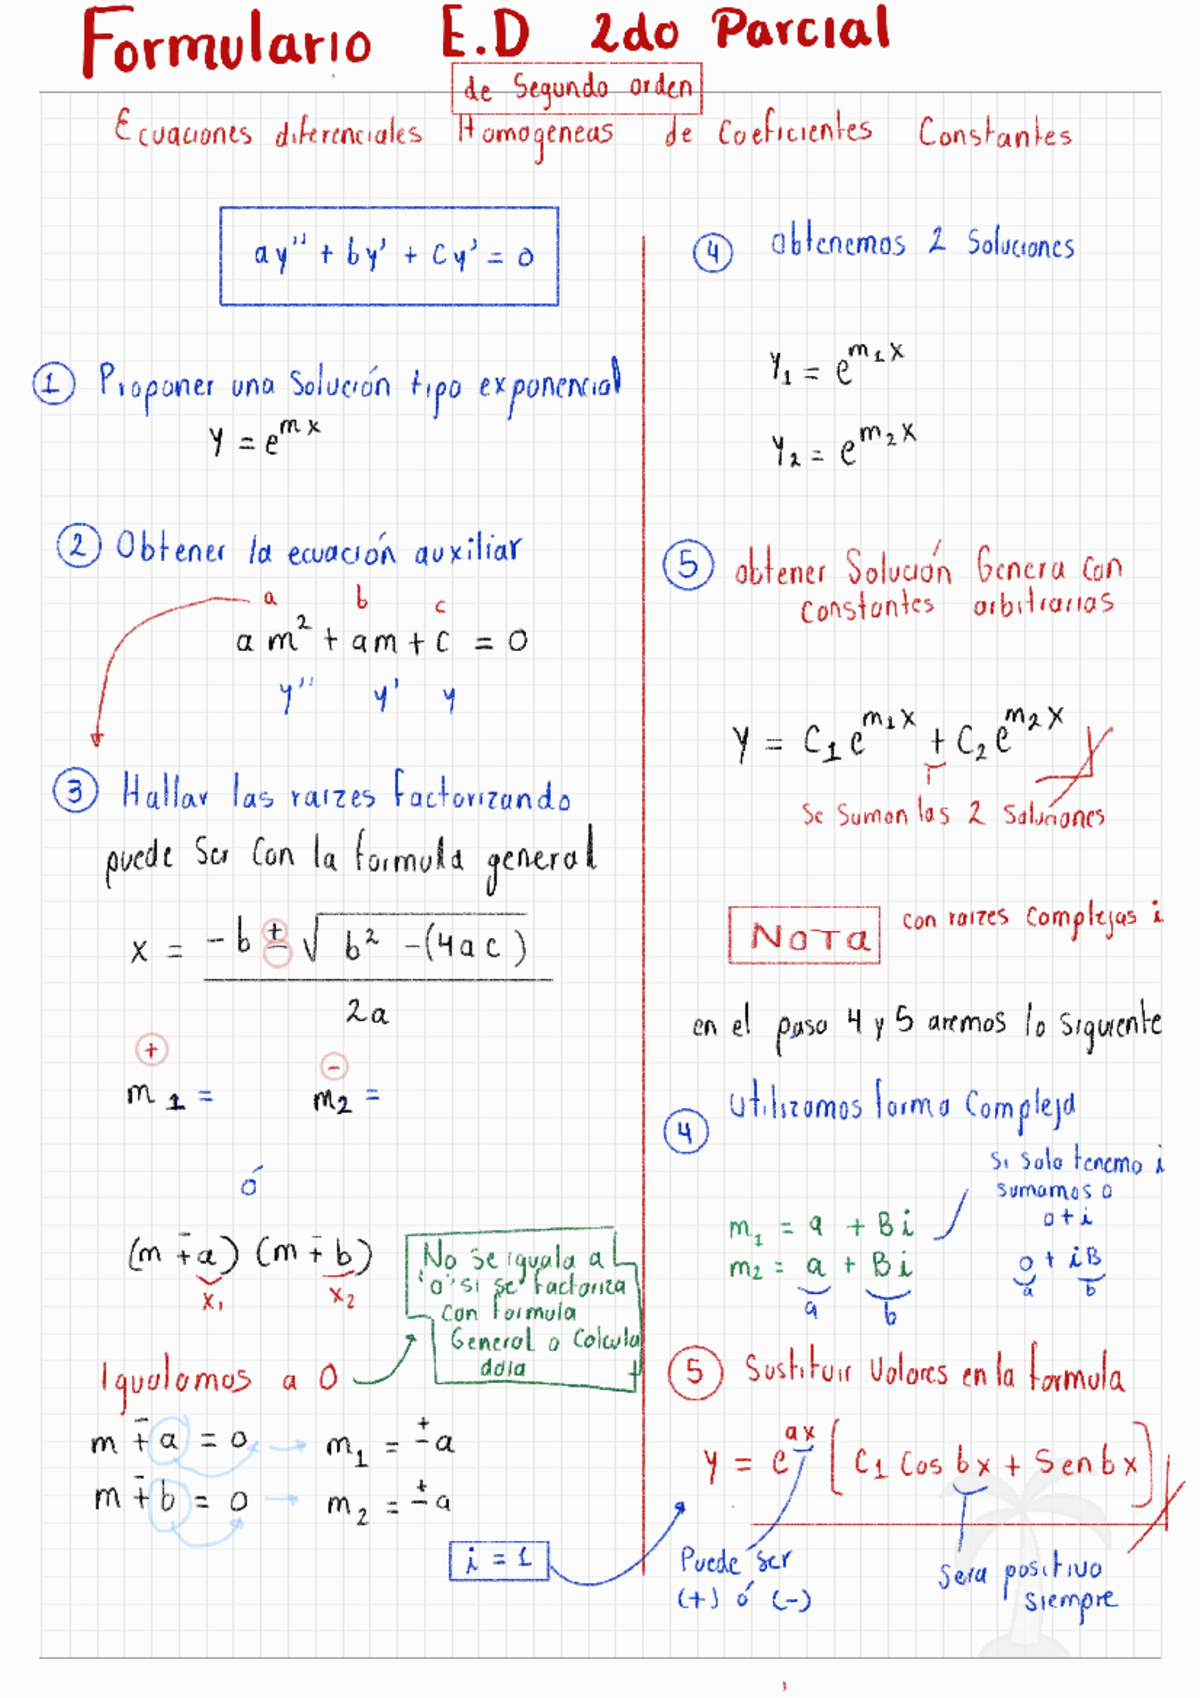 Formulario E.D 2do Parcial
de Segundo orden
Ecuaciones diferenciales Homogeneas de Coeficientes Constantes
ay'' + by' + Cy' = 0
① Proponer una Solución tipo exponencial
y = e^{mx}
② Obtener la ecuación auxiliar
a b c
a m² + am + c = 0
y'' y' y
③ Hallar las raizes factorizando
puede Ser Con la formula general
x = \frac{-b ± √(b² -(4ac))}{2a}
+ -
m₁ = m₂ =
ó
(m ∓ a) (m ∓ b)
x₁ x₂
No se iguala al
"0" si se factoriza
con formula
General o Calcula
dora
Igualamos a 0
m ∓ a = 0 → m₁ = ± a
m ∓ b = 0 → m₂ = ± a
i = 1
④ obtenemos 2 Soluciones
y₁ = e^{m₁x}
y₂ = e^{m₂x}
⑤ obtener Solución Genera Con
constantes arbitrarias
y = C₁e^{m₁x} + C₂e^{m₂x}
Se Suman las 2 Soluciones
NOTA con raizes Complejas i
en el paso 4 y 5 aremos lo siguiente
④ utilizamos forma Compleja
si solo tenemo i
sumamos 0
0 + i
m₁ = a + Bi
m₂ = a + Bi
a b
0 + iB
a b
⑤ Sustituir Valores en la formula
y = e^{ax} [C₁ Cos bx + Sen bx]
Puede ser
(+) ó (-)
Sera positivo
siempre